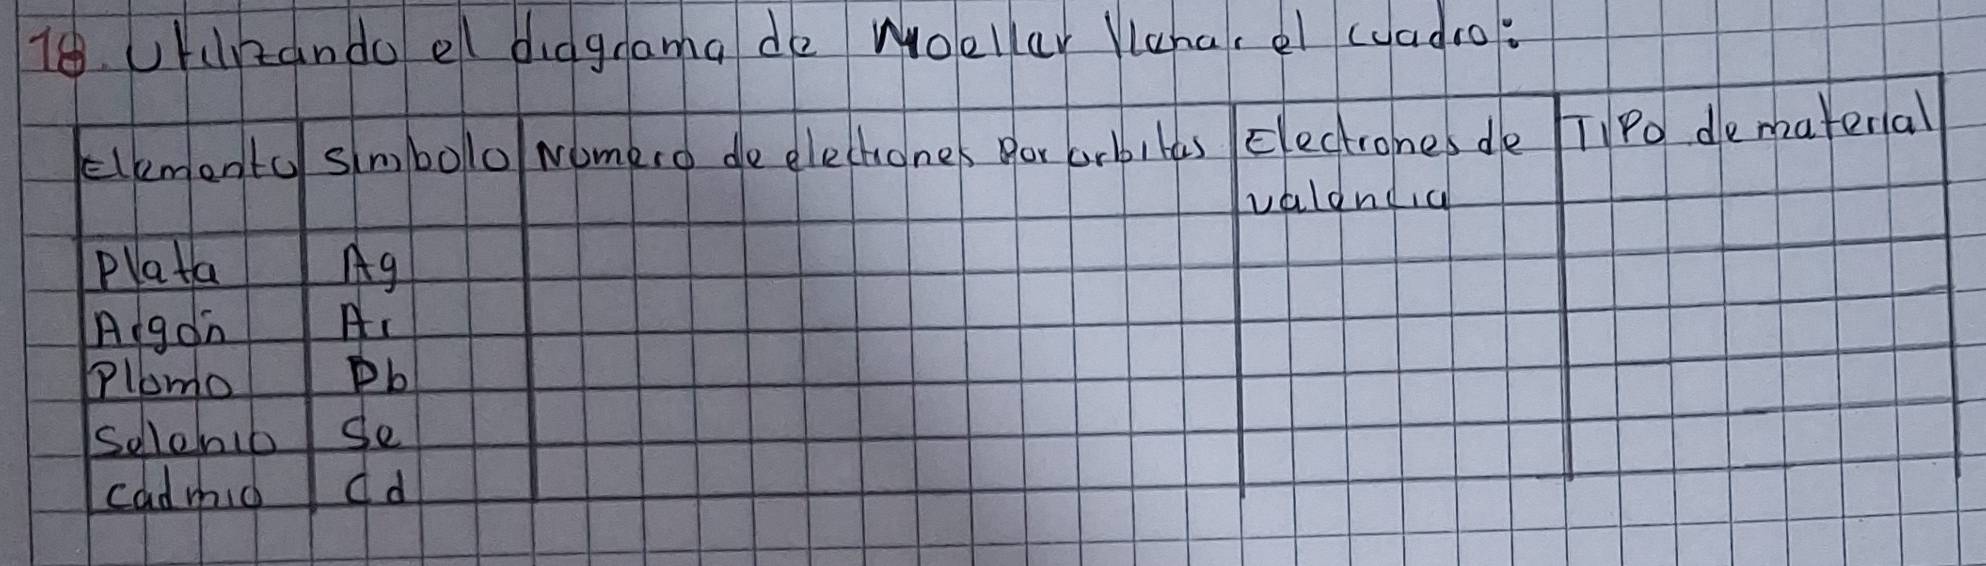 18. Utilizando el diagrama de Moeller llenar el cuadro:
Elemento Simbolo Número de electrones por orbitas Electrones de valencia Tipo de material
Plata Ag
Argón Ar
Plomo Pb
Selenio Se
cadmio Cd